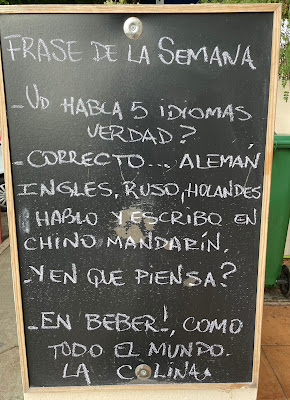 FRASE DE LA SEMANA
-UD HABLA 5 IDIOMAS
VERDAD?
-CORRECTO... ALEMÁN
INGLES, RUSO, HOLANDES
HABLO Y ESCRIBO EN
CHINO MANDARÍN.
-Y EN QUE PIENSA?
-EN BEBER!, COMO
TODO EL MUNDO.
LA COLINA.